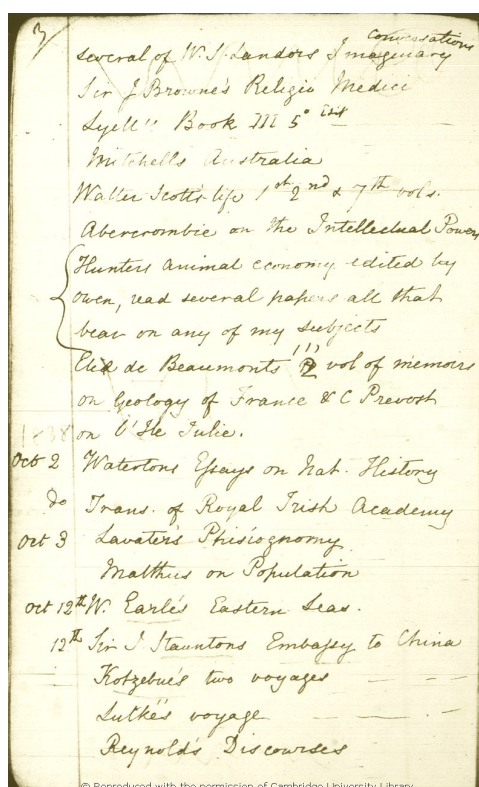 3
several of W. S. Landors Imaginary Conversations
Sir J Browne's Religio Medici
Lyell's Book III 5º Edit
Mitchells Australia
Walter Scotts life 1st 2nd & 7th vols.
Abercrombie on the Intellectual Powers
Hunters animal economy edited by
Owen, read several papers all that
bear on any of my subjects
Elie de Beaumonts 2 vol of memoirs
on Geology of France & C Prevost
on L'Ile Julie.
1838
Oct 2 Watertons Essays on Nat. History
do Trans. of Royal Irish Academy
Oct 3 Lavater's Phisiognomy
Malthus on Population
Oct 12th W. Earle's Eastern Seas.
12th Sir J. Stauntons Embassy to China
Kotzebue's two voyages
Lutké's voyage
Reynold's Discourses
© Reproduced with the permission of Cambridge University Library